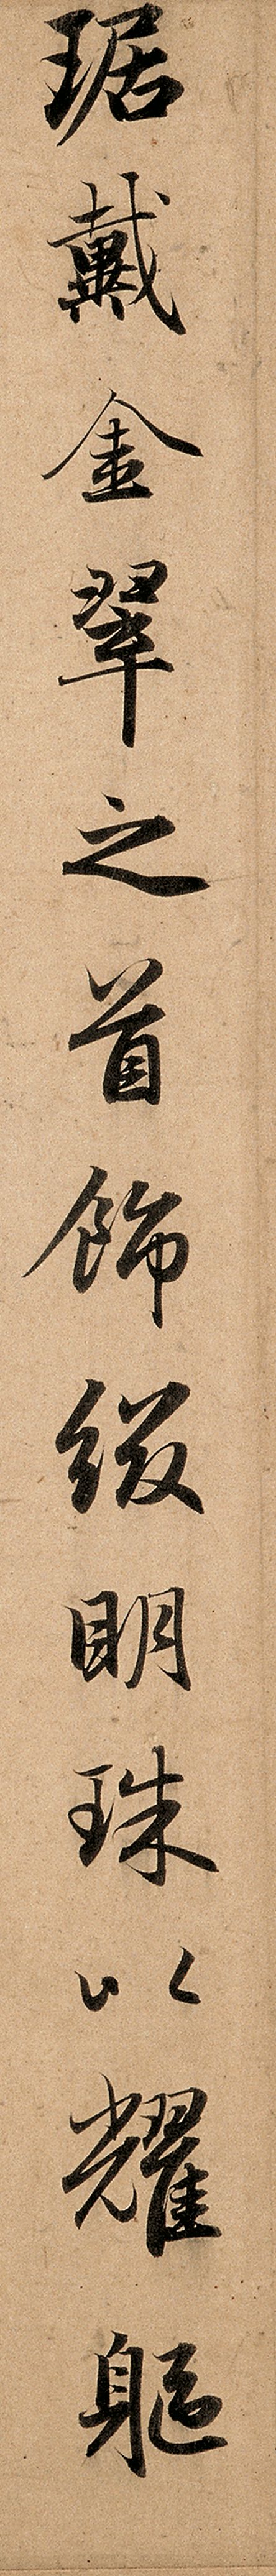 琚戴金翠之首飾綴明珠以耀軀